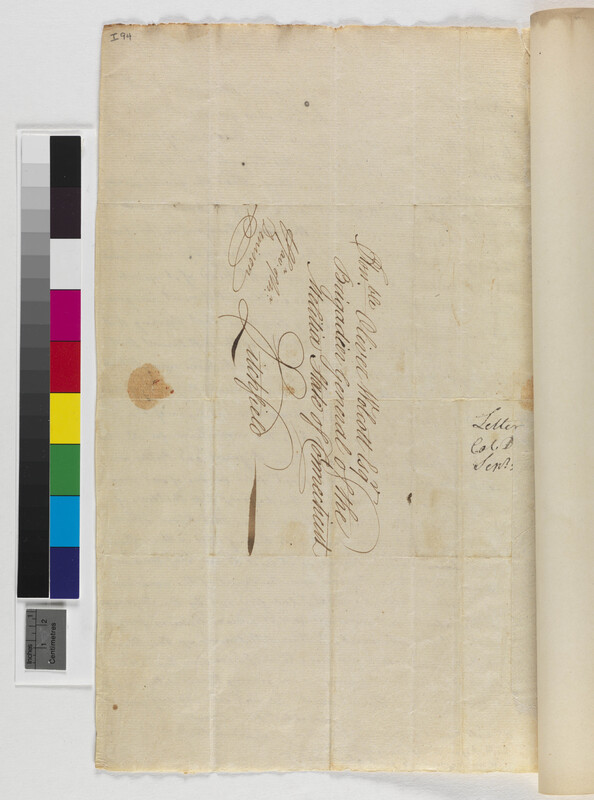 I 94
Hon.ble Oliver Wolcott Esqr
Brigadier General of the
Militia State of Connecticut
Litchfield
Letter
Col. D
Sept:
Inches
1
Centimetres
1 2